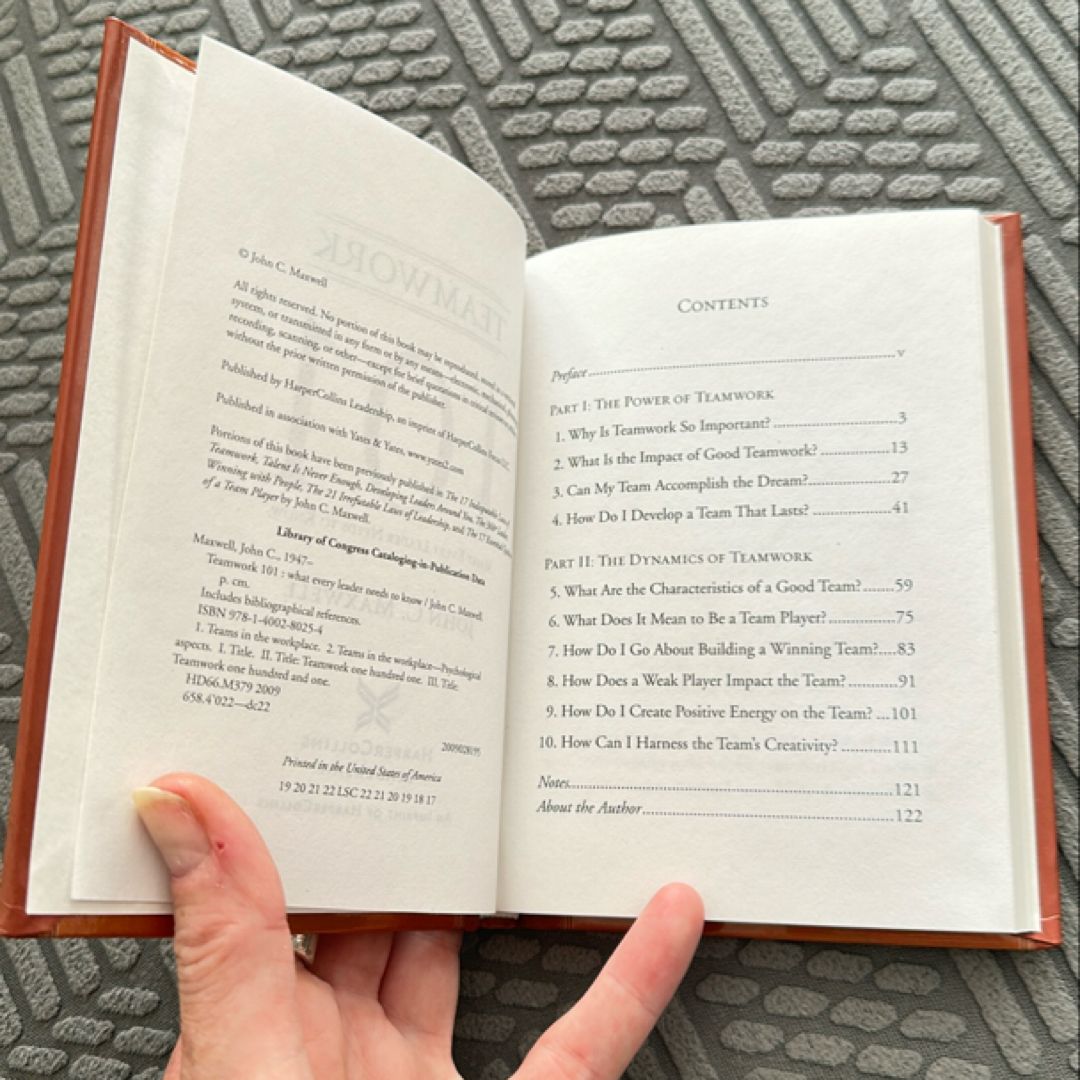 © John C. Maxwell
All rights reserved. No portion of this book may be reproduced, stored in a retrieval
system, or transmitted in any form or by any means—electronic, mechanical,
recording, scanning, or other—except for brief quotations in critical reviews
without the prior written permission of the publisher.
Published by HarperCollins Leadership, an imprint of HarperCollins
Published in association with Yates & Yates, www.yates2.com
Portions of this book have been previously published in The 17 Indisputable Laws of
Teamwork, Talent Is Never Enough, Developing Leaders Around You, The 360° Leader,
Winning with People, The 21 Irrefutable Laws of Leadership, and The 17 Essential
of a Team Player by John C. Maxwell.
Library of Congress Cataloging-in-Publication Data
Maxwell, John C., 1947–
Teamwork 101 : what every leader needs to know / John C. Maxwell
p. cm.
Includes bibliographical references.
ISBN 978-1-4002-8025-4
1. Teams in the workplace. 2. Teams in the workplace—Psychological
aspects. I. Title. II. Title: Teamwork one hundred one. III. Title:
Teamwork one hundred and one.
HD66.M379 2009
658.4'022—dc22
2009028195
Printed in the United States of America
19 20 21 22 LSC 22 21 20 19 18 17
CONTENTS
Preface v
PART I: THE POWER OF TEAMWORK
1. Why Is Teamwork So Important? 3
2. What Is the Impact of Good Teamwork? 13
3. Can My Team Accomplish the Dream? 27
4. How Do I Develop a Team That Lasts? 41
PART II: THE DYNAMICS OF TEAMWORK
5. What Are the Characteristics of a Good Team? 59
6. What Does It Mean to Be a Team Player? 75
7. How Do I Go About Building a Winning Team? 83
8. How Does a Weak Player Impact the Team? 91
9. How Do I Create Positive Energy on the Team? 101
10. How Can I Harness the Team's Creativity? 111
Notes 121
About the Author 122